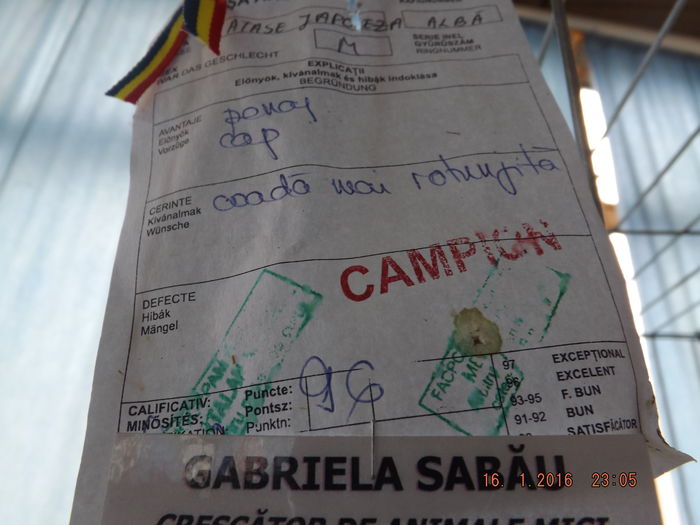 JAPONEZA ALBĂ
M
SERIE INEL
GYÜRÜSZÁM
RINGNUMMER
WAR DAS GESCHLECHT
EXPLICAȚII
Előnyök, kivánalmak és hibák indoklása
BEGRÜNDUNG
AVANTAJE
Előnyök
Vorzüge
penaj
cap
CERINTE
Kivánalmak
Wünsche
coadă mai rotunjită
DEFECTE
Hibák
Mängel
CAMPION
CALIFICATIV:
MINŐSÍTÉS:
Puncte:
Pontsz:
Punktn:
96
97 EXCEPȚIONAL
96 EXCELENT
93-95 F. BUN
91-92 BUN
SATISFĂCĂTOR
GABRIELA SABĂU
CRESCĂTOR DE ANIMALE MICI
16. 1.2016 23:05